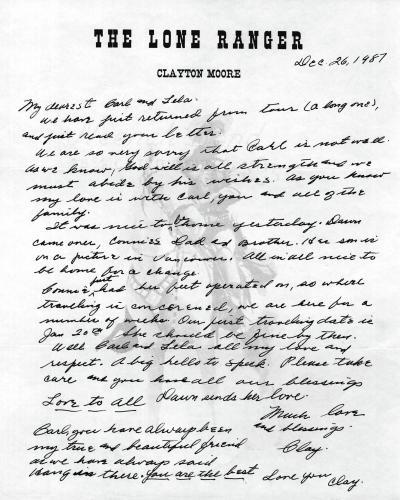 THE LONE RANGER
CLAYTON MOORE
Dec. 26, 1987
My dearest Carl and Lela.
We have just returned from tour (a long one),
and just read your letter.
We are so very sorry that Carl is not well.
As we know, God will is all strength and we
must abide by his wishes. As you know
my love is with Carl, you and all of the
family.
It was nice to be home yesterday. Dawn
came over, Connie's Dad and Brother. Her son is
on a picture in Vancouver. All in all nice to
be home for a change
Connie just had her feet operated on, so where
traveling is concerened, we are here for a
number of weeks. Our first traveling date is
Jan 20th She should be fine by then.
Well Carl and Lela all my love and
respect. A big hello to Speck. Please take
care and you have all our blessings
Love to All Dawn sends her love.
Much love
and blessings.
Clay.
Carl, you have always been
my true and beautiful friend
as we have always said
hang in there. You are the best Love you
Clay.